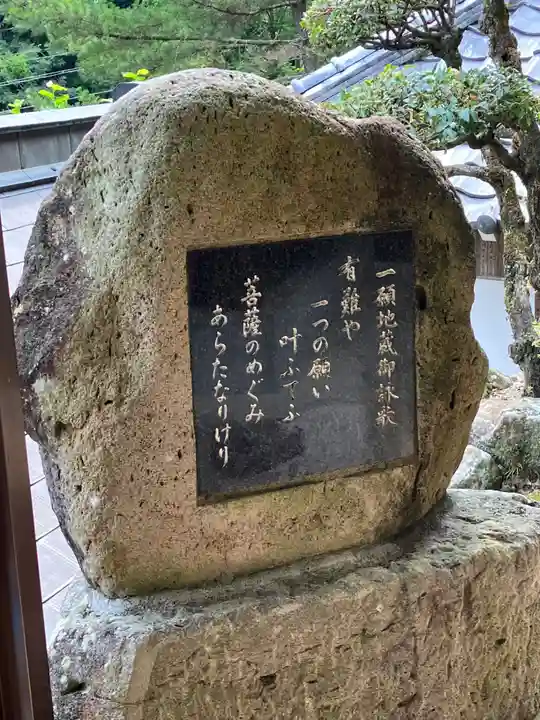 一願地蔵御詠歌
有難や
一つの願い
叶ふてふ
菩薩のめぐみ
あらたなりけり